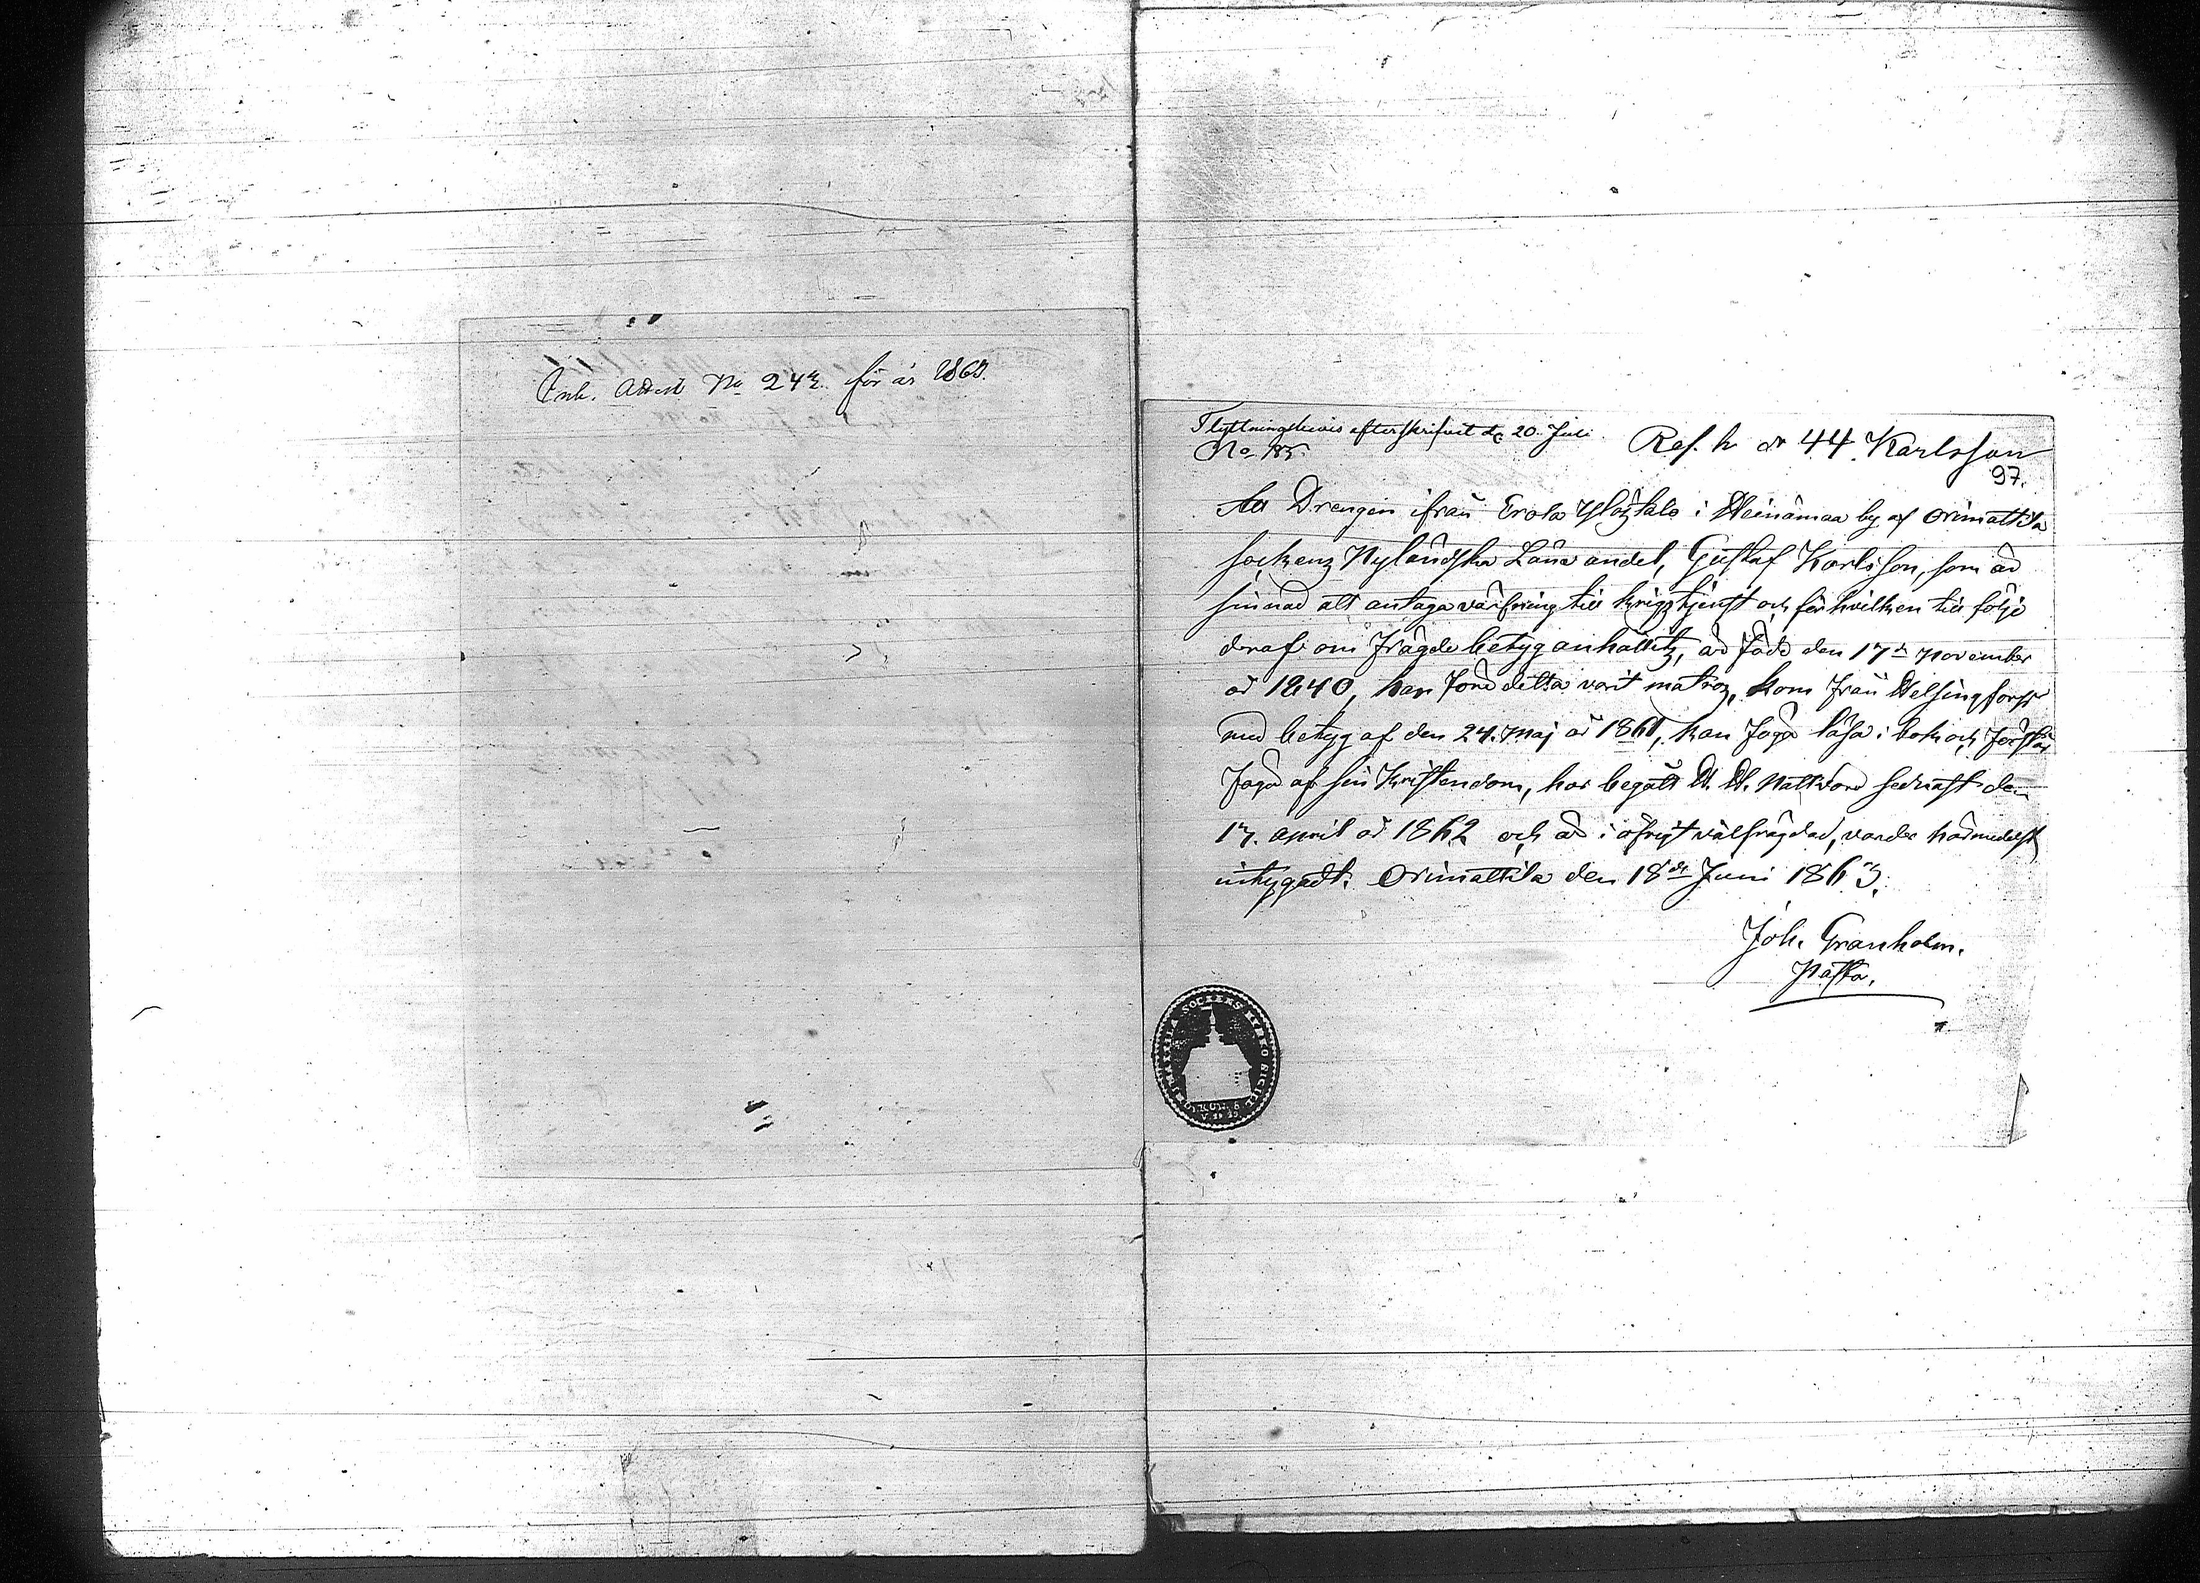 Ink. Attest No 242. för år 1863.
Flyttningsbevis efterskrifvit d. 20. Juli.
No 185.
Ref. h 44. Karlsson
97.
Att Drengen ifrån Erola Ylöstalo i Heinämaa by af Orimattila
sockens Nyländska Läns andel, Gustaf Karlsson, som är
sinnad att antaga värfning till krigstjenst och för hvilken till följe
deraf om frägde betyg anhållits, är född den 17de November
år 1840, har förr detta varit matros, kom från Helsingfors
med betyg af den 24. Maj år 1861, kan foga läsa i bok och förstår
foga af sin Kristendom, har begått H. H. Nattvard sednast den
17. April år 1862 och är i öfrigt välfrägdad, varder härmedelst
intygadt. Orimattila den 18de Juni 1863.
Joh. Granholm.
ORIMATTILA SOCKENS KYRKO SIGILL